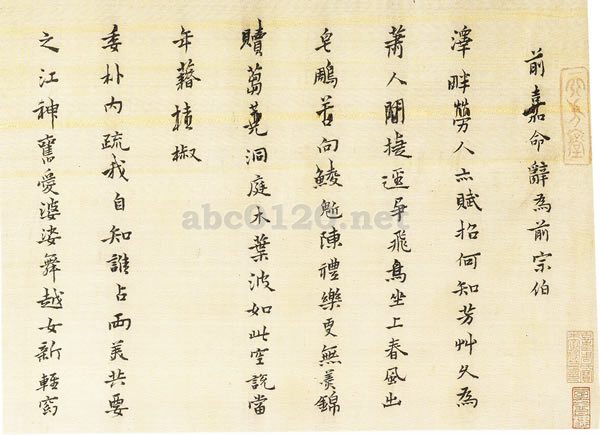 前嘉命辭為前宗伯
澤畔勞人亦賦招何知芳艸久為
蕭人間捷逕爭飛鳥坐上春風出
皂雕若向陳禮樂更無錦
贖蒭蕘洞庭木葉波如此空說當
年藉椒
委朴內疏我自知誰占兩美共要
之江神舊愛婆娑舞越女新輕窈
abc0120.net